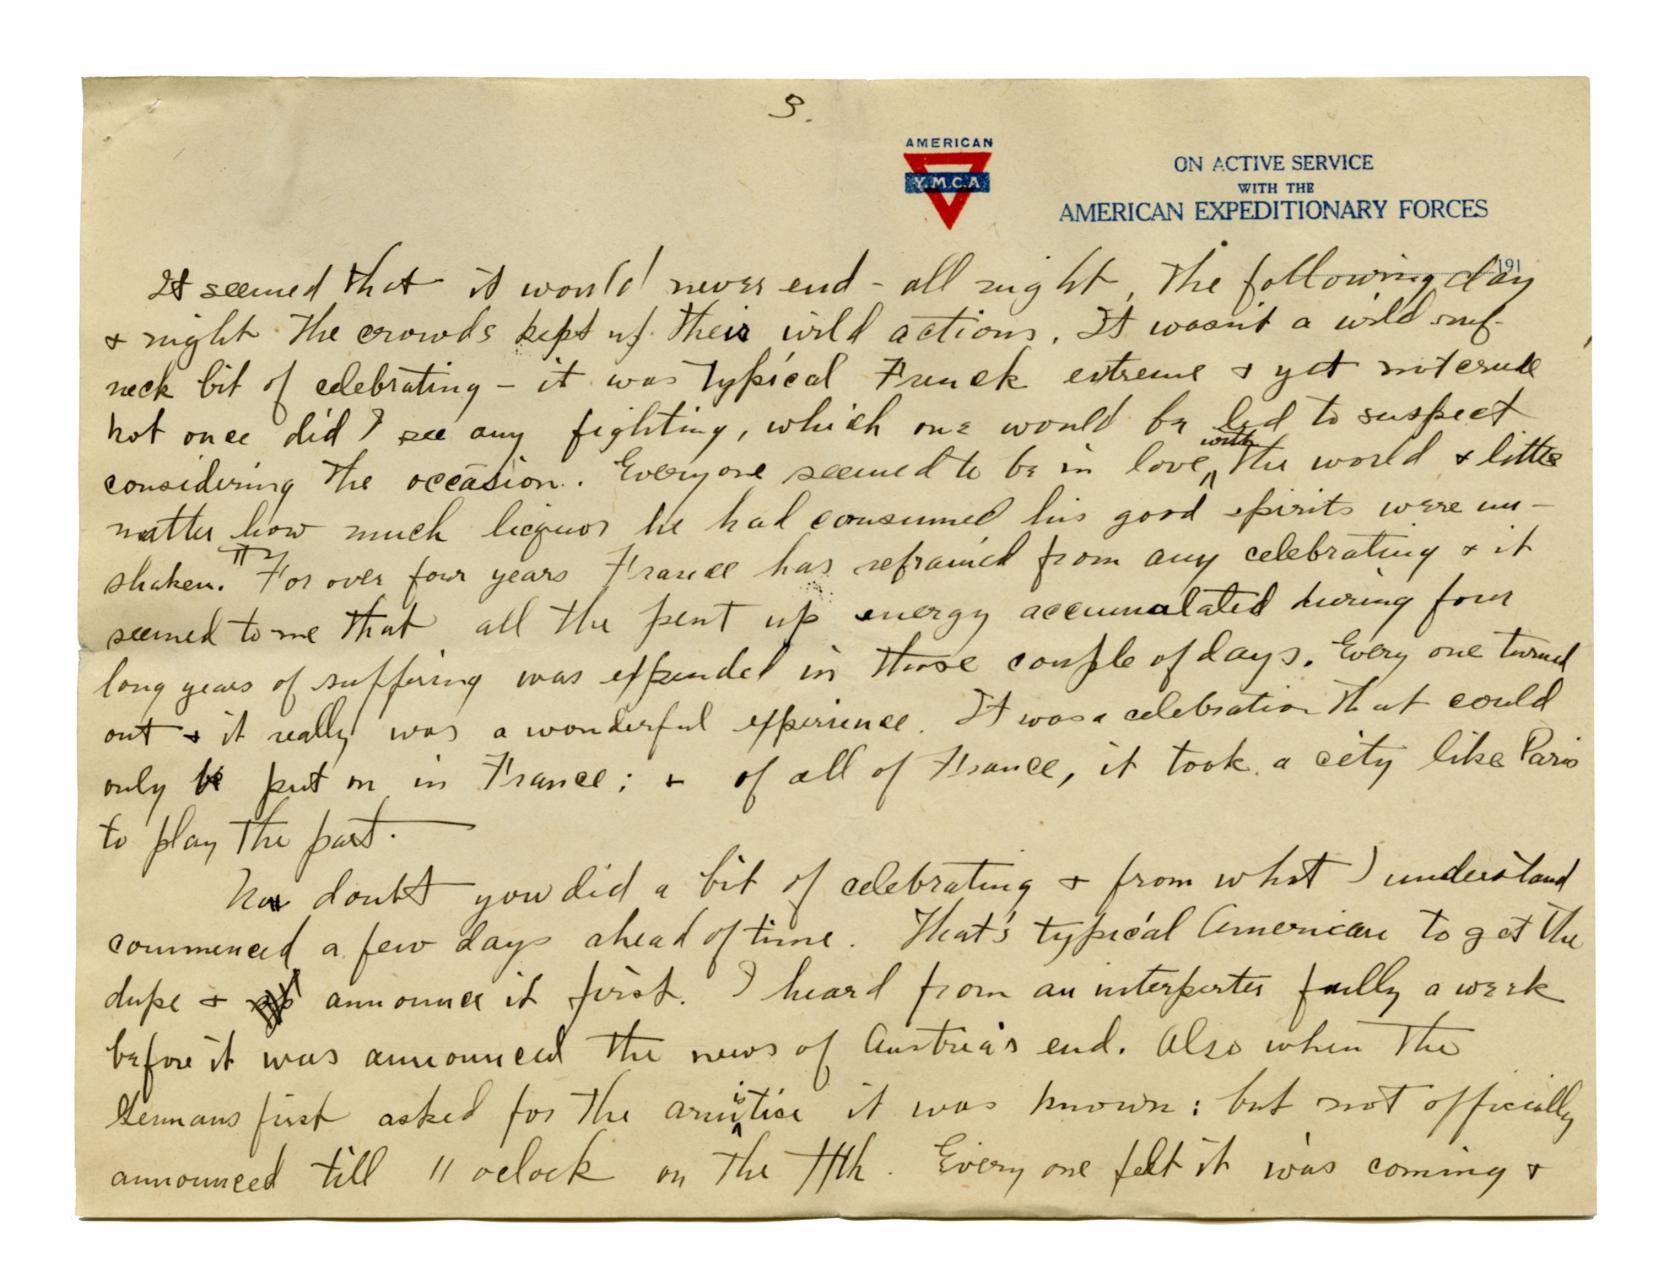 3.
AMERICAN
Y.M.C.A
ON ACTIVE SERVICE
WITH THE
AMERICAN EXPEDITIONARY FORCES
191
It seemed that it would never end - all night, the following day
& night the crowds kept up their wild actions. It wasn't a wild ruf-
neck bit of celebrating - it was typical French extreme & yet not crude
not once did I see any fighting, which one would be led to suspect
considering the occasion. Everyone seemed to be in love with the world & little
matter how much liquor he had consumed his good spirits were un-
shaken. For over four years France has refrained from any celebrating & it
seemed to me that all the pent up energy accumulated during four
long years of suffering was expended in those couple of days. Every one turned
out & it really was a wonderful experience. It was a celebration that could
only be put on in France; & of all of France, it took a city like Paris
to play the part.
No doubt you did a bit of celebrating & from what I understand
commenced a few days ahead of time. That's typical American to get the
dope & announce it first. I heard from an interperter fully a week
before it was announced the news of Austria's end. Also when the
Germans first asked for the armistice it was known: but not officially
announced till 11 oclock on the 11th. Every one felt it was coming &